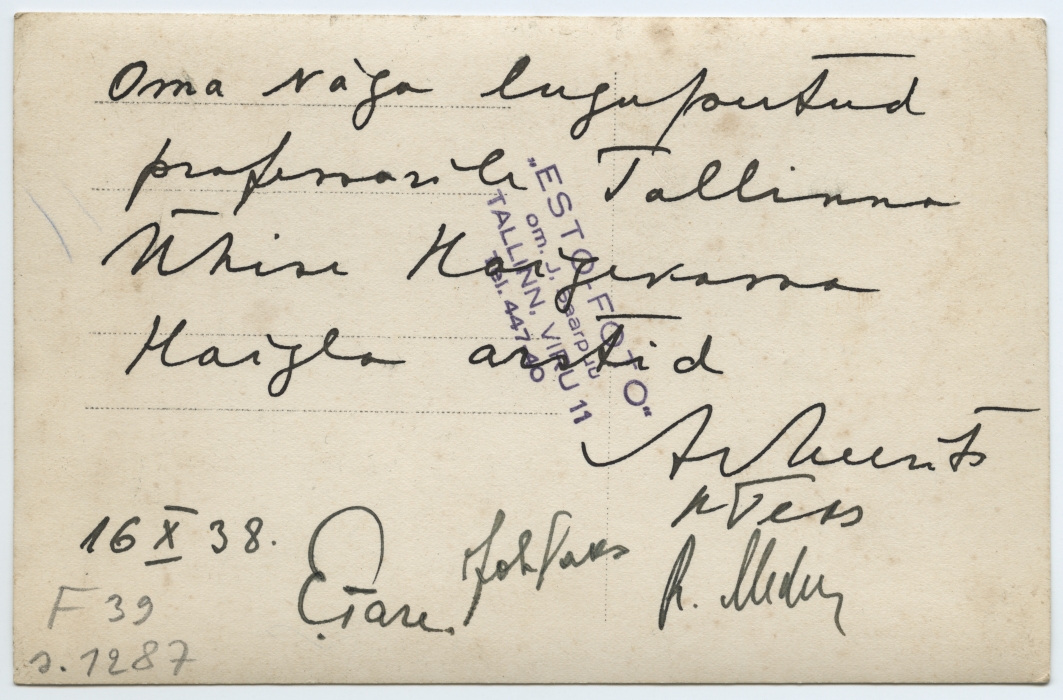 Oma väga lugupeetud
professorile Tallinna
Ühise Haigekassa
Haigla arstid
"ESTO-FOTO"
om. J. Saarpuu
TALLINN, VIRU 11
Tel. 447-40
16 X 38.
E. Tare.
R. 
F 39
s. 1287